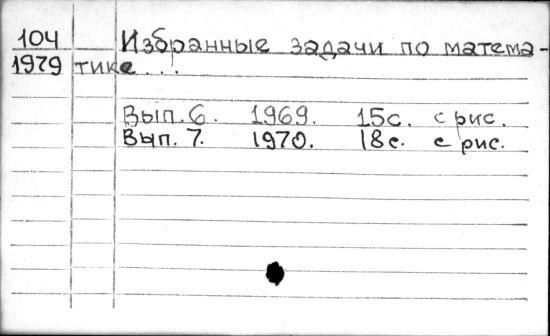 104 Избранные задачи по матема-
1979 тике...
Вып. 6. 1969. 15с. с рис.
Вып. 7. 1970. 18с. с рис.